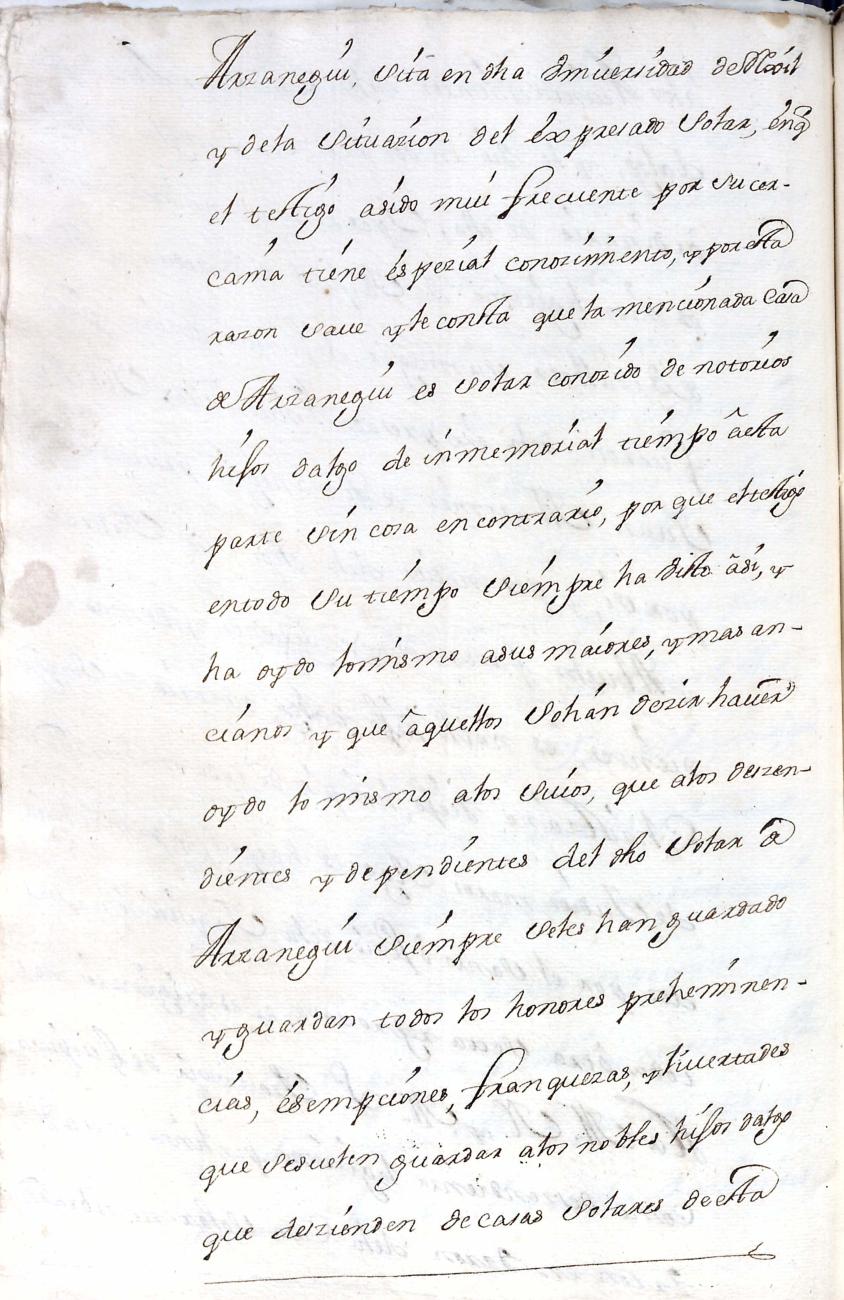 Arzanegui, sita en dha Universidad de
y de la situazion del expresado Solar, enq̃
el testigo asido mui frecuente por su cer-
cania tiene espezial conozimiento, y por esta
razon save y le consta que la mencionada Casa
de Arzanegui es solar conozido de notorios
hijos dalgo de inmemorial tiempo â esta
parte sin cosa en contrario, por que el testigo
entodo su tiempo siempre ha visto âsi, y
ha oydo lo mismo asus maiores, y mas an-
cianos y que âquellos solian dezir haver
oydo lo mismo alos suios, que alos deszen-
dientes y dependientes del dho Solar de
Arzanegui siempre seles han guardado
y guardan todos los honores preheminen-
cias, esempciones, franquezas, y livertades
que sesuelen guardar alos nobles hijos dalgo
que deszienden de casas solares de esta